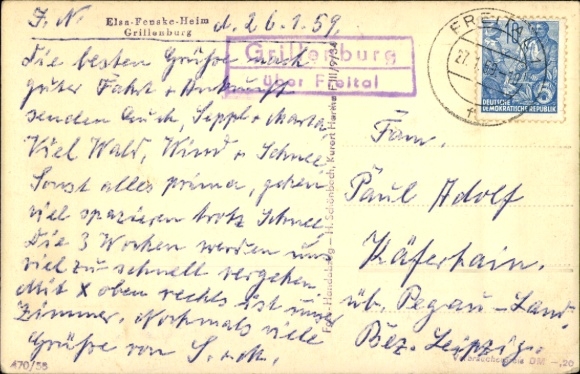 Elsa-Fenske-Heim
Grillenburg
d. 26.1.59.
Die besten Grüße nach
guter Fahrt + Ankunft
senden Euch, Seppl + Marta.
Viel Wald, Wind + Schnee.
Sonst alles prima, gehen
viel spazieren trotz Schnee.
Die 3 Wochen werden uns
viel zu schnell vergehen.
Mit X oben rechts ist unser
Zimmer. Nochmals viele
Grüße von S. + M.
470/58
Grillenburg
über Freital
Foto-Handabzug - H. Schönbach, Kurort Hartha F III/9/34
FREITAL
27.1.59
DEUTSCHE
DEMOKRATISCHE REPUBLIK
Fam.
Paul Adolf
Käferhain.
üb. Pegau-Land
Bez. Leipzig.
Verbraucherpreis DM -,20